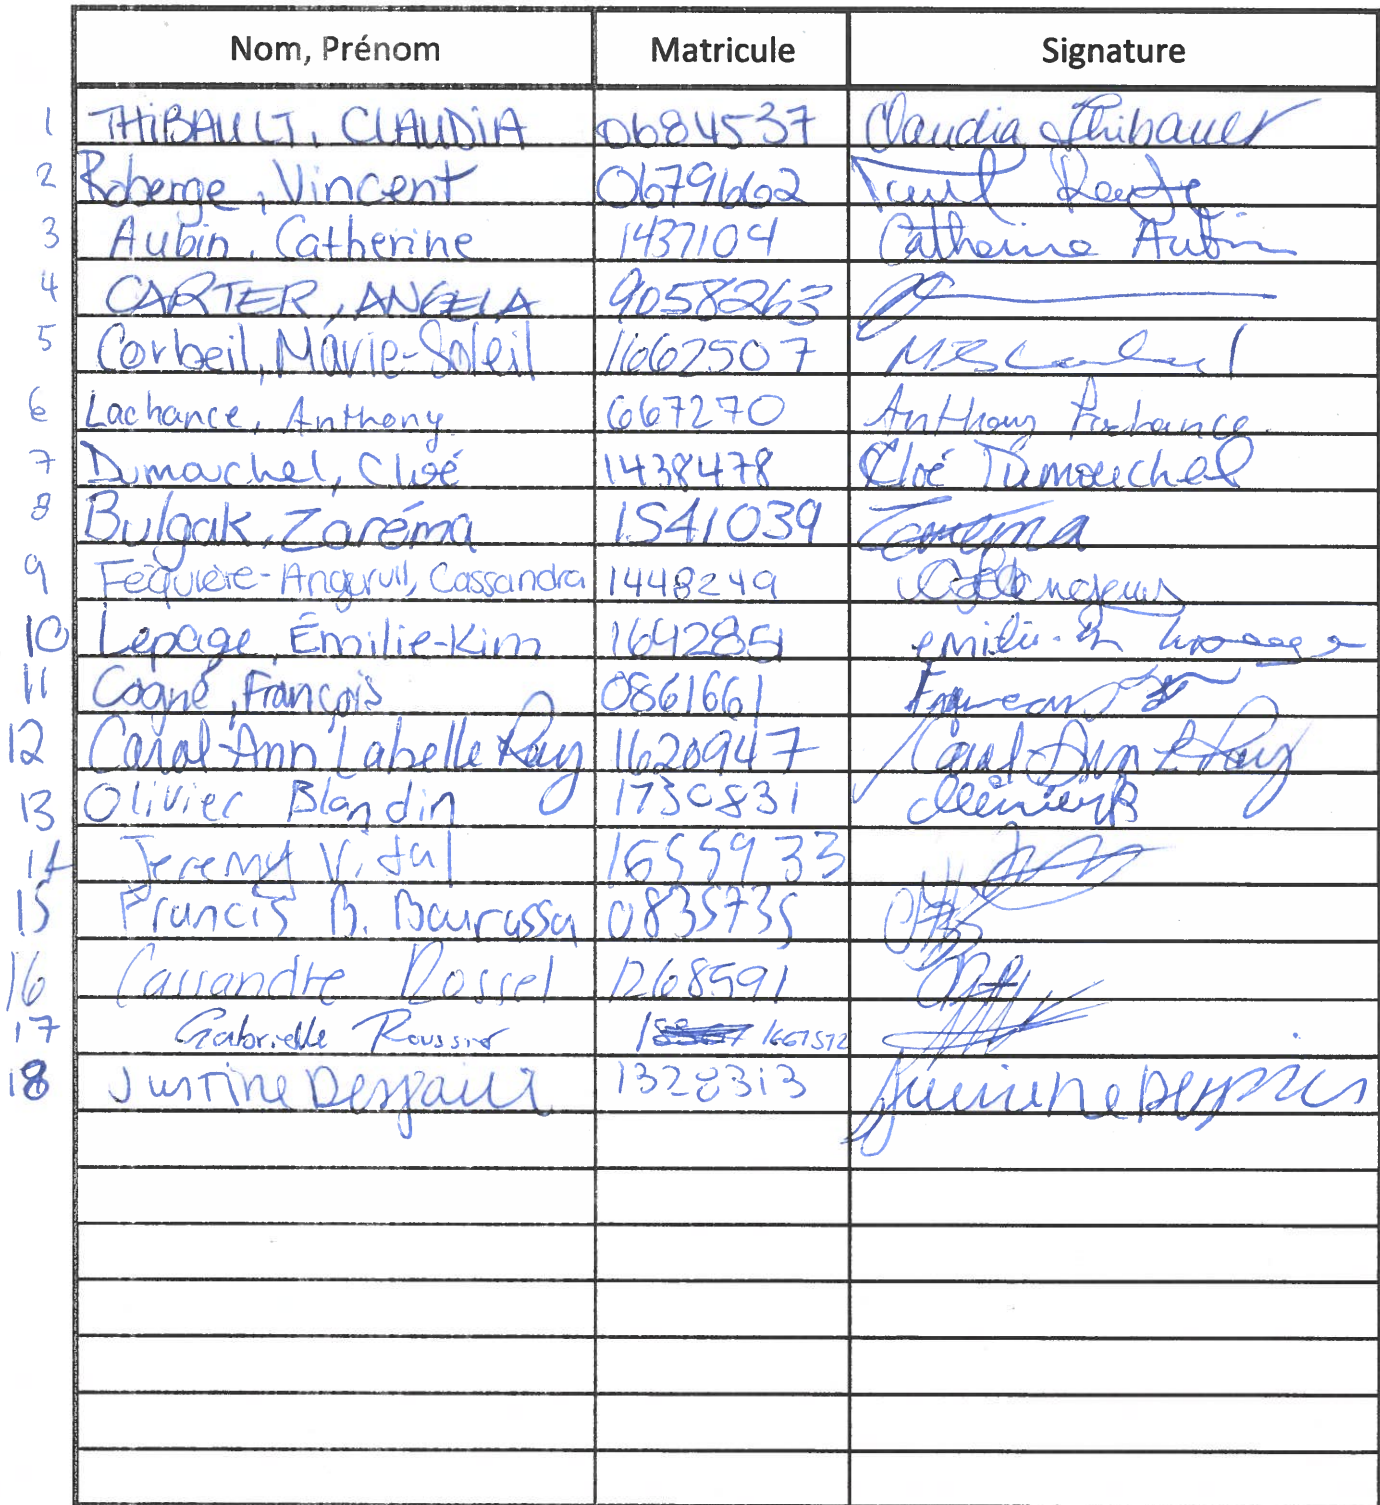 Nom, Prénom Matricule Signature
1 THIBAULT, CLAUDIA 0684537 Claudia Thibault
2 Roberge, Vincent 0679662
3 Aubin, Catherine 1437104 Catherine Aubin
4 CARTER, ANGELA 9058263
5 Corbeil, Marie-Soleil 1662507
6 Lachance, Anthony 667270 Anthony Lachance
7 Dumouchel, Cloé 1438478 Cloé Dumouchel
8 Bulgak, Zaréma 1541039 Zarema
9 Fequière-Angervil, Cassandra 1448249
10 Lepage, Émilie-Kim 1642851
11 Cogné, François 0861661
12 Carol-Ann Labelle Ray 1620947 Carol Ann L Ray
13 Olivier Blandin 1730831
14 Jeremy Vidal 1655933
15 Francis B. Bourassa 0835735
16 Cassandre Rossel 1268591
17 Gabrielle 1661572
18 Justine 1328313 Justine